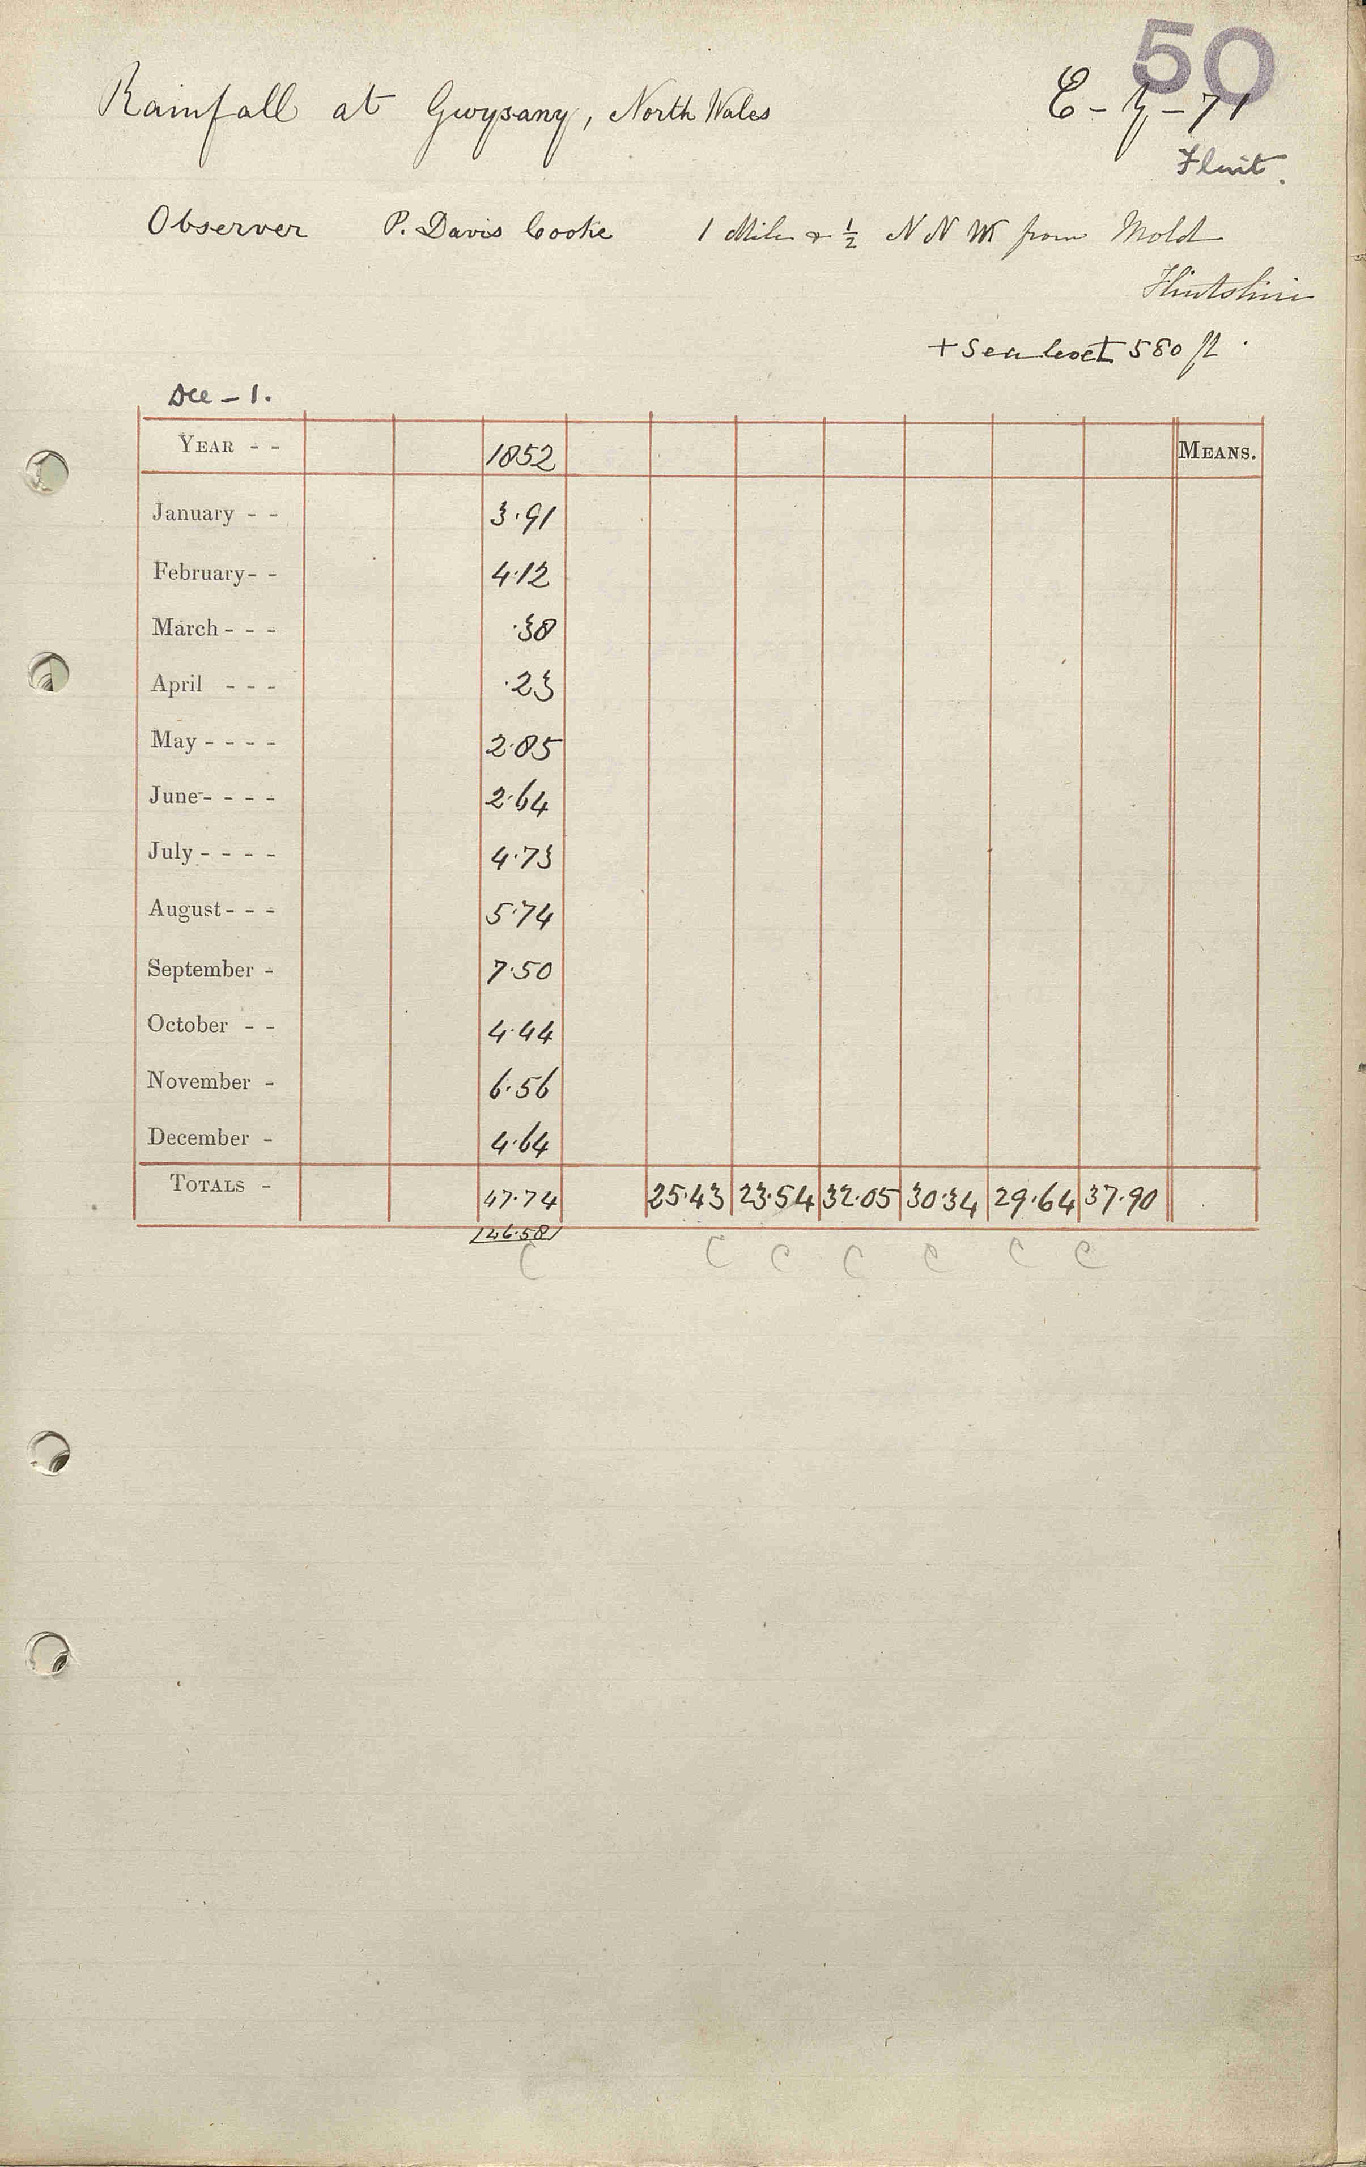 50
Rainfall at Gwysany, North Wales
E - y - 71
Flint.
Observer P. Davis Cooke 1 Mile & ½ N N W from Mold
Flintshire
+ Sea level 580 ft.
Dec - 1.
YEAR - - 1852 MEANS.
January - - 3.91
February - - 4.12
March - - - .38
April - - - .23
May - - - - 2.85
June - - - - 2.64
July - - - - 4.73
August - - - 5.74
September - 7.50
October - - 4.44
November - 6.56
December - 4.64
TOTALS - 47.74 25.43 23.54 32.05 30.34 29.64 37.90
46.58
C C C C C C C